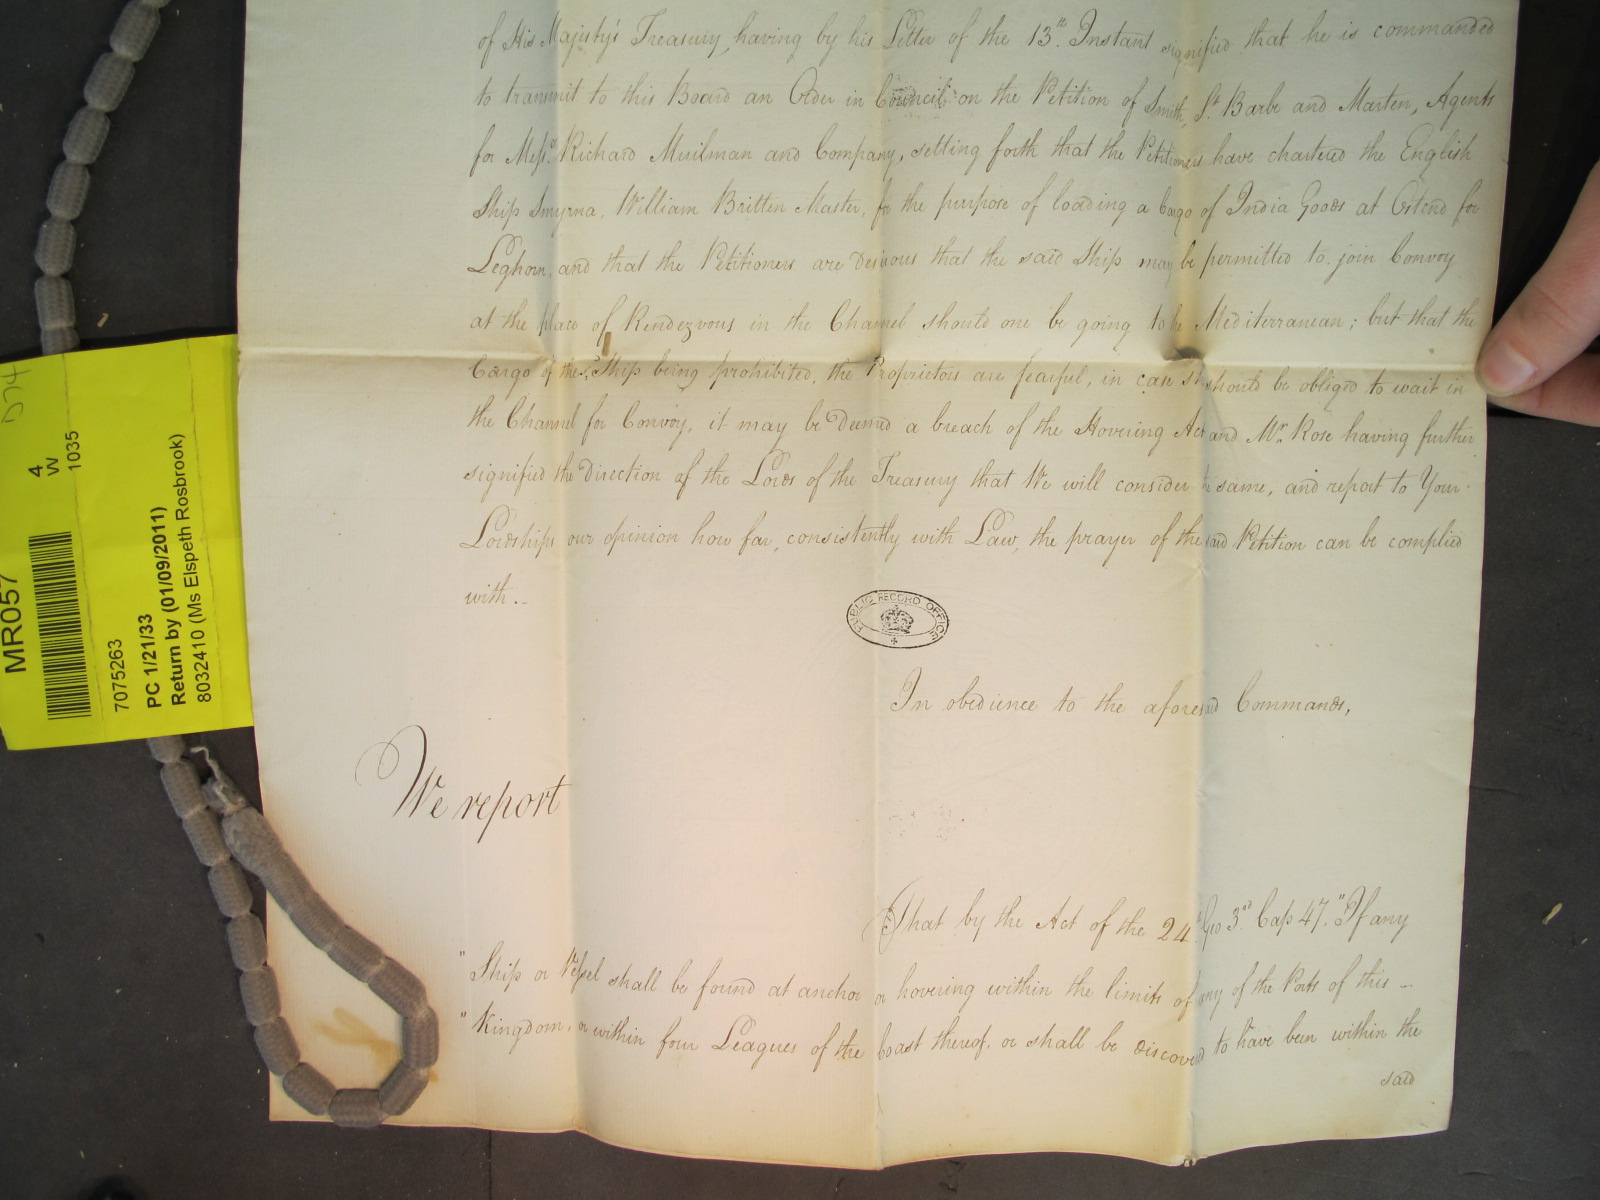 of His Majesty's Treasury, having by his Letter of the 13th. Instant signified that he is commanded
to transmit to this Board an Order in Council on the Petition of Smith, St. Barbe and Marten, Agents
for Messrs. Richard Muilman and Company, setting forth that the Petitioners have chartered the English
Ship Smyrna, William Britten Master, for the purpose of loading a Cargo of India Goods at Ostend for
Leghorn, and that the Petitioners are desirous that the said Ship may be permitted to join Convoy
at the place of Rendezvous in the Channel should one be going to the Mediterranean; but that the
Cargo of the sd. Ship being prohibited, the Proprietors are fearful, in case it should be obliged to wait in
the Channel for Convoy, it may be deemed a breach of the Hovering Act and Mr. Rose having further
signified the direction of the Lords of the Treasury that We will consider the same, and report to Your
Lordships our opinion how far, consistently with Law, the prayer of the said Petition can be complied
with..
PUBLIC RECORD OFFICE
In obedience to the aforesaid Commands,
We report
That by the Act of the 24th. Geo 3rd. Cap 47. "If any
"Ship or Vessel shall be found at anchor or hovering within the limits of any of the Ports of this
"Kingdom, or within four Leagues of the Coast thereof, or shall be discovered to have been within the
said
D74
4
W
1035
MR057
7075263
PC 1/21/33
Return by (01/09/2011)
8032410 (Ms Elspeth Rosbrook)